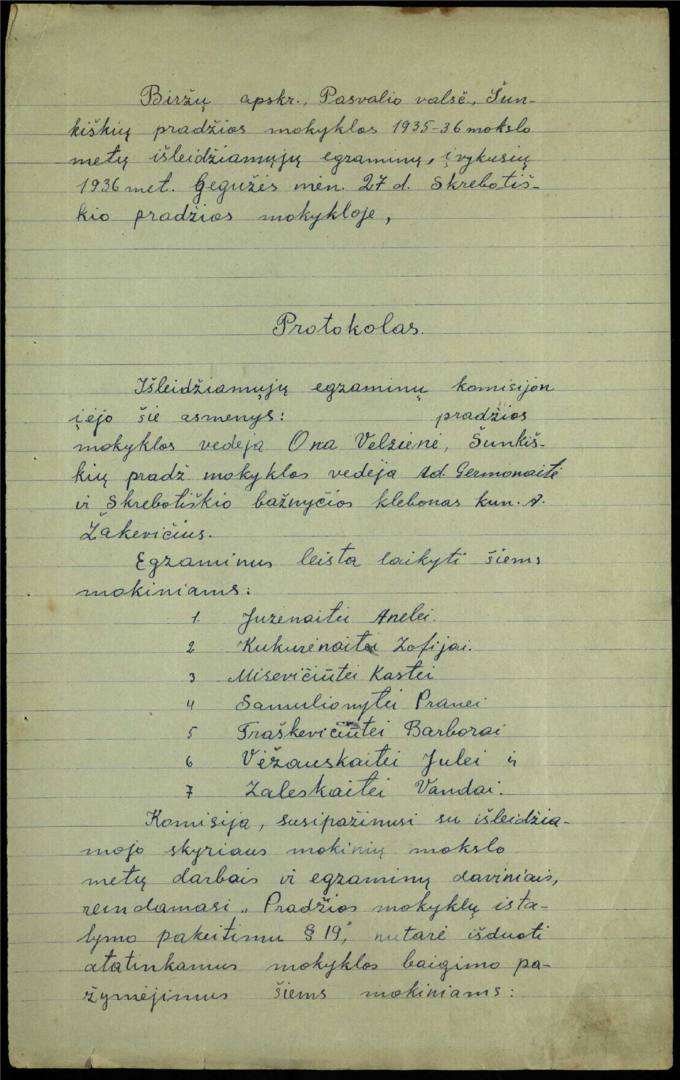 Biržų apskr., Pasvalio valsč., Šun-
kiškių pradžios mokyklos 1935-36 mokslo
metų išleidžiamųjų egzaminų, įvykusių
1936 met. Gegužės mėn. 27 d. Skrebotiš-
kio pradžios mokykloje,
Protokolas.
Išleidžiamųjų egzaminų komisijon
įėjo šie asmenys: pradžios
mokyklos vedėja Ona Velzienė, Šunkiš-
kių pradž mokyklos vedėja Ad. Germonaitė
ir Skrebotiškio bažnyčios klebonas kun. A.
Žakevičius.
Egzaminus leista laikyti šiems
mokiniams:
1. Juzenaitei Anelei.
2 Kukurėnaitei Zofijai.
3 Misevičiūtei Kastei
4 Samulionytei Pranei
5 Traškevičiūtei Barborai
6 Vėžauskaitei Julei ir
7 Zaleskaitei Vandai.
Komisija, susipažinusi su išleidžia-
mojo skyriaus mokinių mokslo
metų darbais ir egzaminų daviniais,
remdamasi „Pradžios mokyklų įsta-
tymo pakeitimu § 19", nutarė išduoti
atatinkamus mokyklos baigimo pa-
žymėjimus šiems mokiniams: